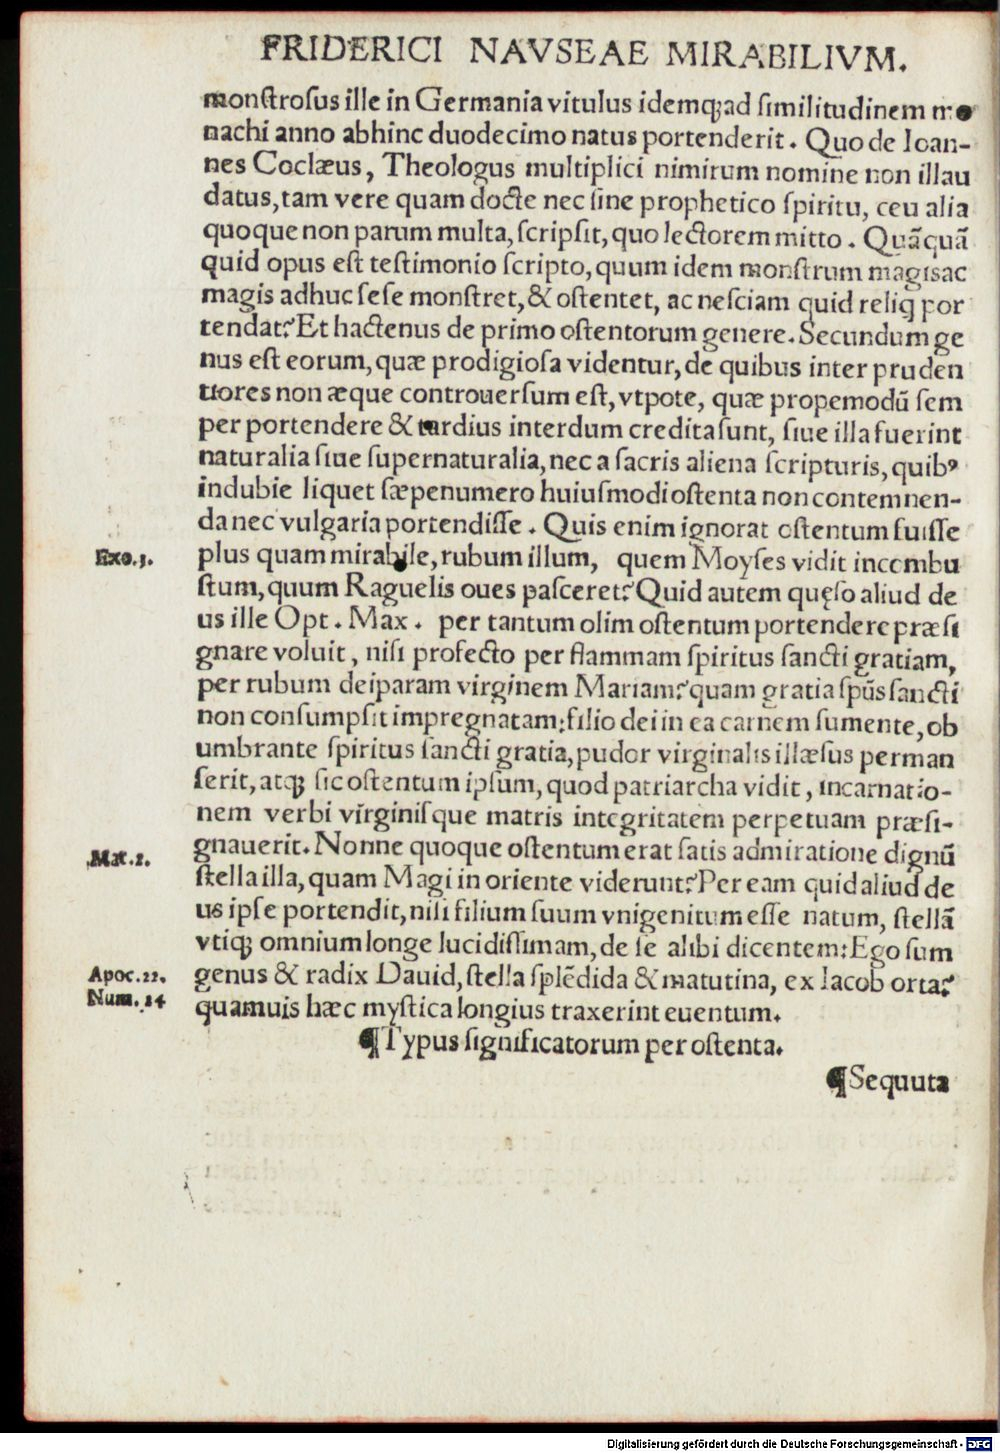 FRIDERICI NAVSEAE MIRABILIVM.
monſtroſus ille in Germania vitulus idemqꝫ ad ſimilitudinem mo
nachi anno abhinc duodecimo natus portenderit. Quo de Ioan-
nes Coclæus, Theologus multiplici nimirum nomine non illau
datus, tam vere quam docte nec ſine prophetico ſpiritu, ceu alia
quoque non parum multa, ſcripſit, quo lectorem mitto. Quãquã
quid opus eſt teſtimonio ſcripto, quum idem monſtrum magis ac
magis adhuc ſeſe monſtret, & oſtentet, ac neſciam quid reliq por
tendat? Et hactenus de primo oſtentorum genere. Secundum ge
nus eſt eorum, quæ prodigioſa videntur, de quibus inter pruden
tiores non æque controuerſum eſt, vtpote, quæ propemodũ ſem
per portendere & tardius interdum credita ſunt, ſiue illa fuerint
naturalia ſiue ſupernaturalia, nec a ſacris aliena ſcripturis, quibꝰ
indubie liquet ſæpenumero huiuſmodi oſtenta non contemnen-
da nec vulgaria portendiſſe. Quis enim ignorat oſtentum fuiſſe
Exo. 3.
plus quam mirabile, rubum illum, quem Moyſes vidit incombu
ſtum, quum Raguelis oues paſceret? Quid autem quęſo aliud de
us ille Opt. Max. per tantum olim oſtentum portendere præſi
gnare voluit, niſi profecto per flammam ſpiritus ſancti gratiam,
per rubum deiparam virginem Mariam? quam gratia ſpũs ſancti
non conſumpſit impregnatam: filio dei in ea carnem ſumente, ob
umbrante ſpiritus ſancti gratia, pudor virginalis illæſus perman
ſerit, atqꝫ ſic oſtentum ipſum, quod patriarcha vidit, incarnatio-
nem verbi virginiſque matris integritatem perpetuam præſi-
gnauerit. Nonne quoque oſtentum erat ſatis admiratione dignũ
Mat. 2.
ſtella illa, quam Magi in oriente viderunt? Per eam quid aliud de
us ipſe portendit, niſi filium ſuum vnigenitum eſſe natum, ſtellã
vtiqꝫ omnium longe lucidiſſimam, de ſe alibi dicentem: Ego ſum
Apoc. 22.
genus & radix Dauid, ſtella ſplẽdida & matutina, ex Iacob orta?
Num. 24
quamuis hæc myſtica longius traxerint euentum.
¶Typus ſignificatorum per oſtenta.
¶Sequuta
Digitalisierung gefördert durch die Deutsche Forschungsgemeinschaft - DFG